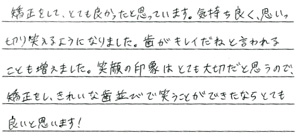 矯正をして、とても良かったと思っています。気持ち良く、思いっ
切り笑えるようになりました。歯がキレイだねと言われる
ことも増えました。笑顔の印象はとても大切だと思うので、
矯正をし、きれいな歯並びで笑うことができたならとても
良いと思います!